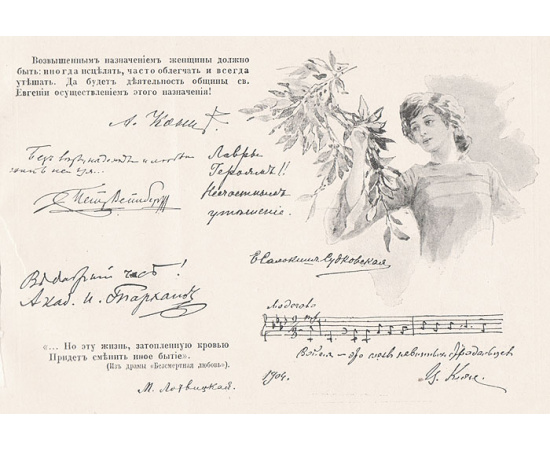 Возвышеннымъ назначеніемъ женщины должно
быть: иногда исцѣлять, часто облегчать и всегда
утѣшать. Да будетъ дѣятельность общины св.
Евгеніи осуществленіемъ этого назначенія!
А. Кони
Безъ вѣры, надежды и любви
жить нельзя...
Петръ Вейнбергъ
Лавры
Героямъ!!
Несчастнымъ
утѣшеніе.
Въ добрый часъ!
Акад. И. Тархановъ
„... Но эту жизнь, затопленную кровью
Придетъ смѣнить иное бытіе“.
(Изъ драмы «Безсмертная любовь»).
М. Лохвицкая.
Судковская
Война — это
1904.
Ц. Кюи.